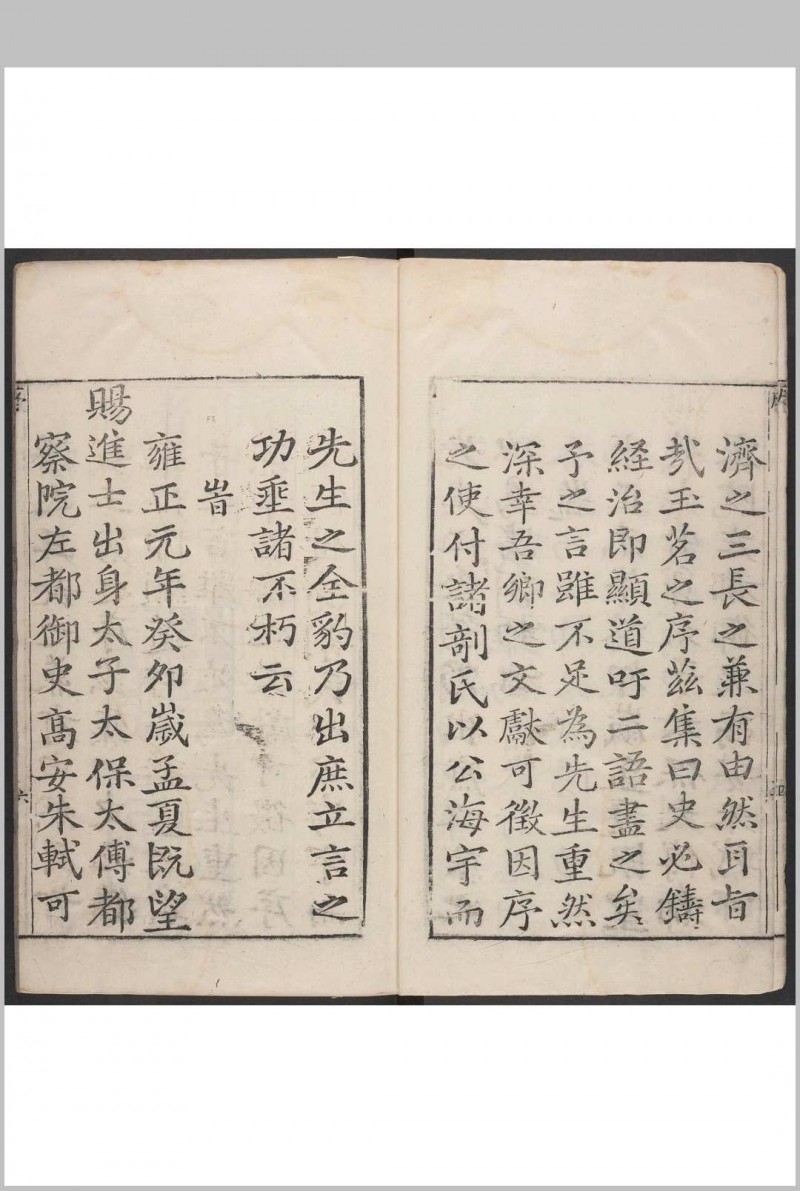 濟之三長之兼有由然耳旨
哉玉茗之序茲集曰史必鑄
経治即顯道吁二語盡之矣
予之言雖不足為先生重然
深幸吾鄉之文獻可徵因序
之使付諸剞氏以公海宇而
先生之全豹乃出庶立言之
功垂諸不朽云
旹
雍正元年癸卯嵗孟夏既望
賜進士出身太子太保太傅都
察院左都御史高安朱軾可
六